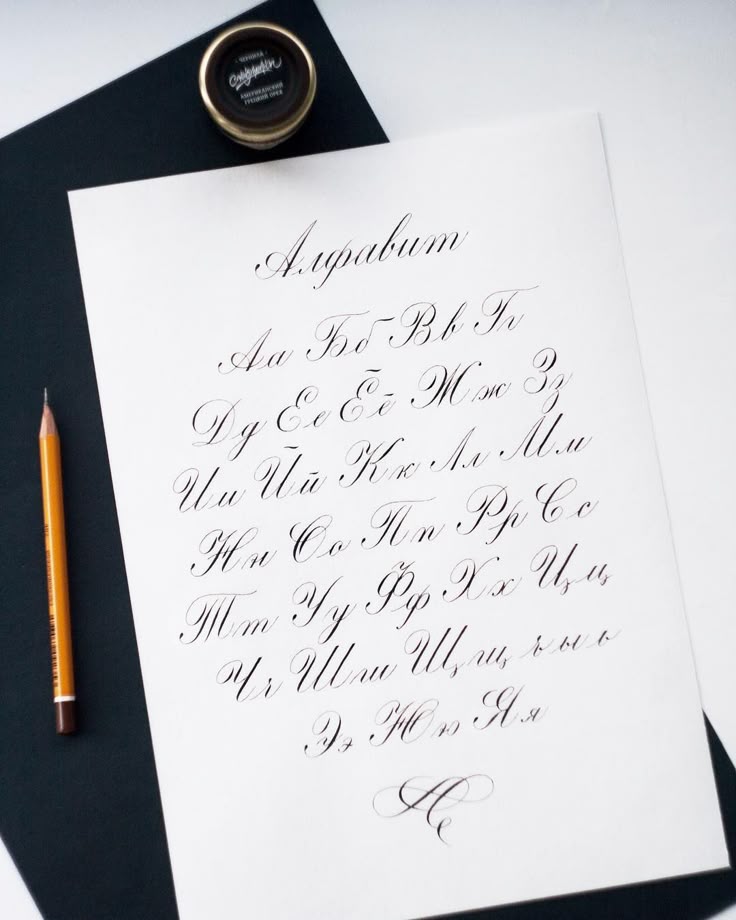 ЧЕРНИЛА
АМЕРИКАНСКИЙ
ГРЕЦКИЙ ОРЕХ
Алфавит
Аа Бб Вв Гг
Дд Ее Ёё Жж Зз
Ии Йй Кк Лл Мм
Нн Оо Пп Рр Сс
Тт Уу Фф Хх Цц
Чч Шш Щщ ъ ы ь
Ээ Юю Яя